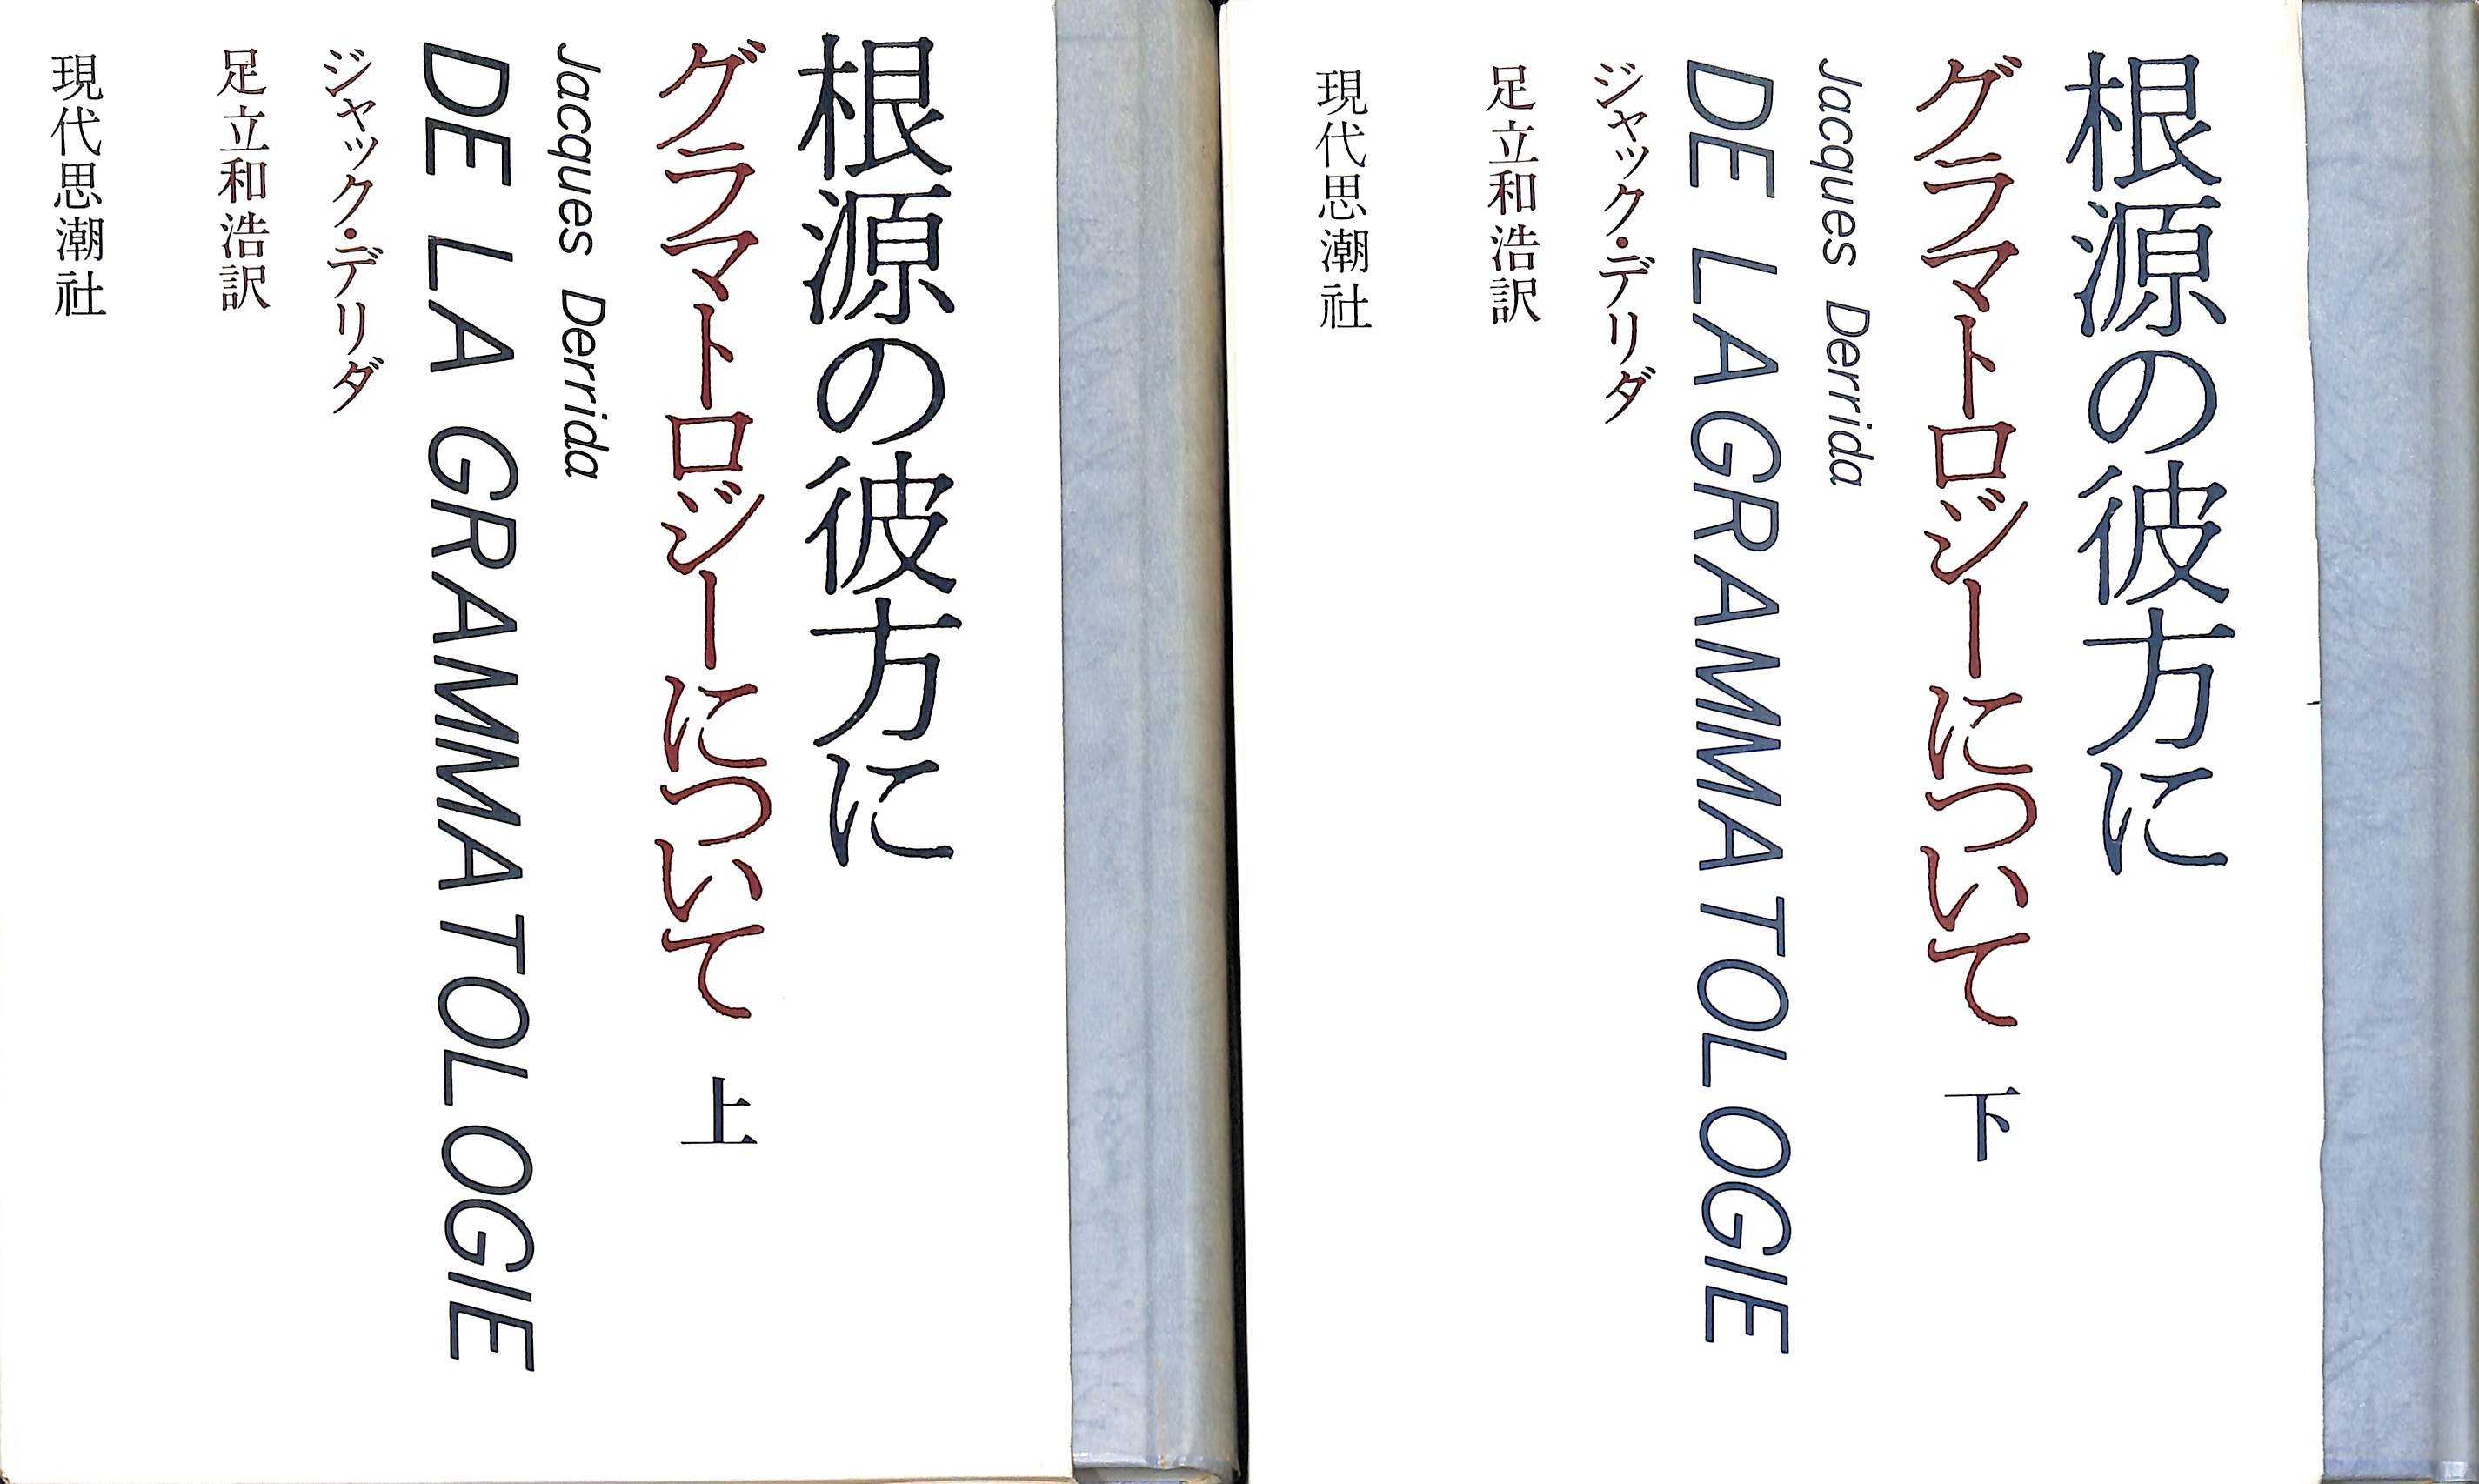 根源の彼方に
グラマトロジーについて 下
Jacques Derrida
DE LA GRAMMATOLOGIE
ジャック・デリダ
足立和浩訳
現代思潮社
根源の彼方に
グラマトロジーについて 上
Jacques Derrida
DE LA GRAMMATOLOGIE
ジャック・デリダ
足立和浩訳
現代思潮社